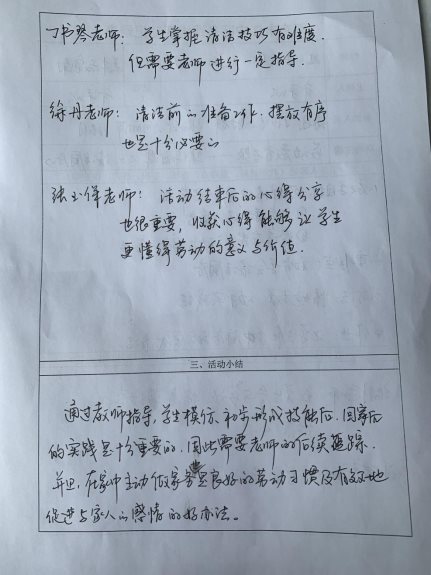 丁书琴老师：学生掌握清洁技巧有难度.
但需要老师进行一定指导.
徐丹老师：清洁前的准备工作.摆放有序
也是十分必要的
张玉佯老师：活动结束后的心得分享
也很重要,收获心得能够让学生
更懂得劳动的意义与价值.
三、活动小结
通过教师指导,学生模仿、初步形成技能后,回家后
的实践是十分重要的.因此需要老师的后续追踪.
并且,在家中主动做家务是良好的劳动习惯及有效地
促进与家人的感情的好办法。